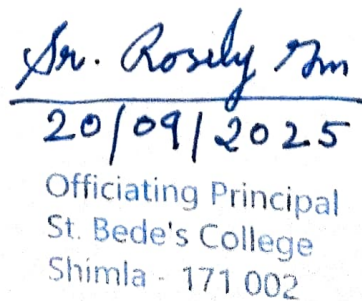 Sr. Rosily
20/09/2025
Officiating Principal
St. Bede's College
Shimla - 171 002